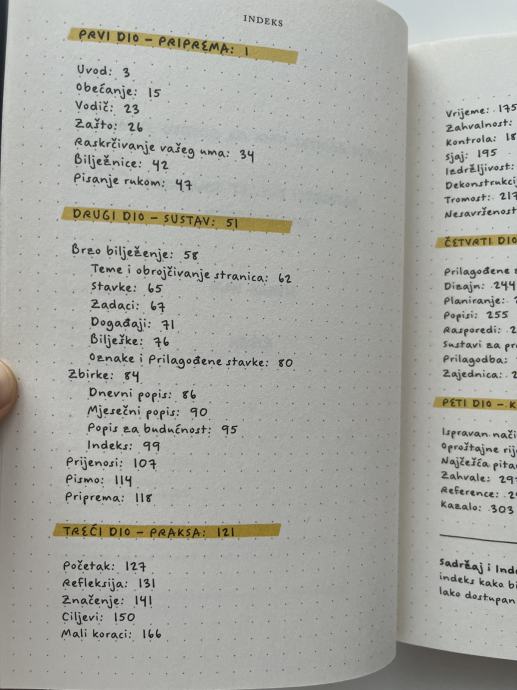 INDEKS
PRVI DIO – PRIPREMA: 1
Uvod: 3
Obećanje: 15
Vodič: 23
Zašto: 26
Raskrčivanje vašeg uma: 34
Bilježnice: 42
Pisanje rukom: 47
DRUGI DIO – SUSTAV: 51
Brzo bilježenje: 58
Teme i obrojčivanje stranica: 62
Stavke: 65
Zadaci: 67
Događaji: 71
Bilješke: 76
Oznake i Prilagođene stavke: 80
Zbirke: 84
Dnevni popis: 86
Mjesečni popis: 90
Popis za budućnost: 95
Indeks: 99
Prijenosi: 107
Pismo: 114
Priprema: 118
TREĆI DIO – PRAKSA: 121
Početak: 127
Refleksija: 131
Značenje: 141
Ciljevi: 150
Mali koraci: 166
Vrijeme: 175
Zahvalnost:
Kontrola:
Sjaj: 195
Izdržljivost:
Tromost:
ČETVRTI DIO
Prilagođene
Dizajn: 244
Planiranje:
Popisi: 255
Rasporedi:
Sustavi za
Prilagodba:
Zajednica:
PETI DIO –
Ispravan
Oproštajne
Najčešća
Zahvale:
Reference:
Kazalo: 303
Sadržaj i
indeks kako
lako dostupan